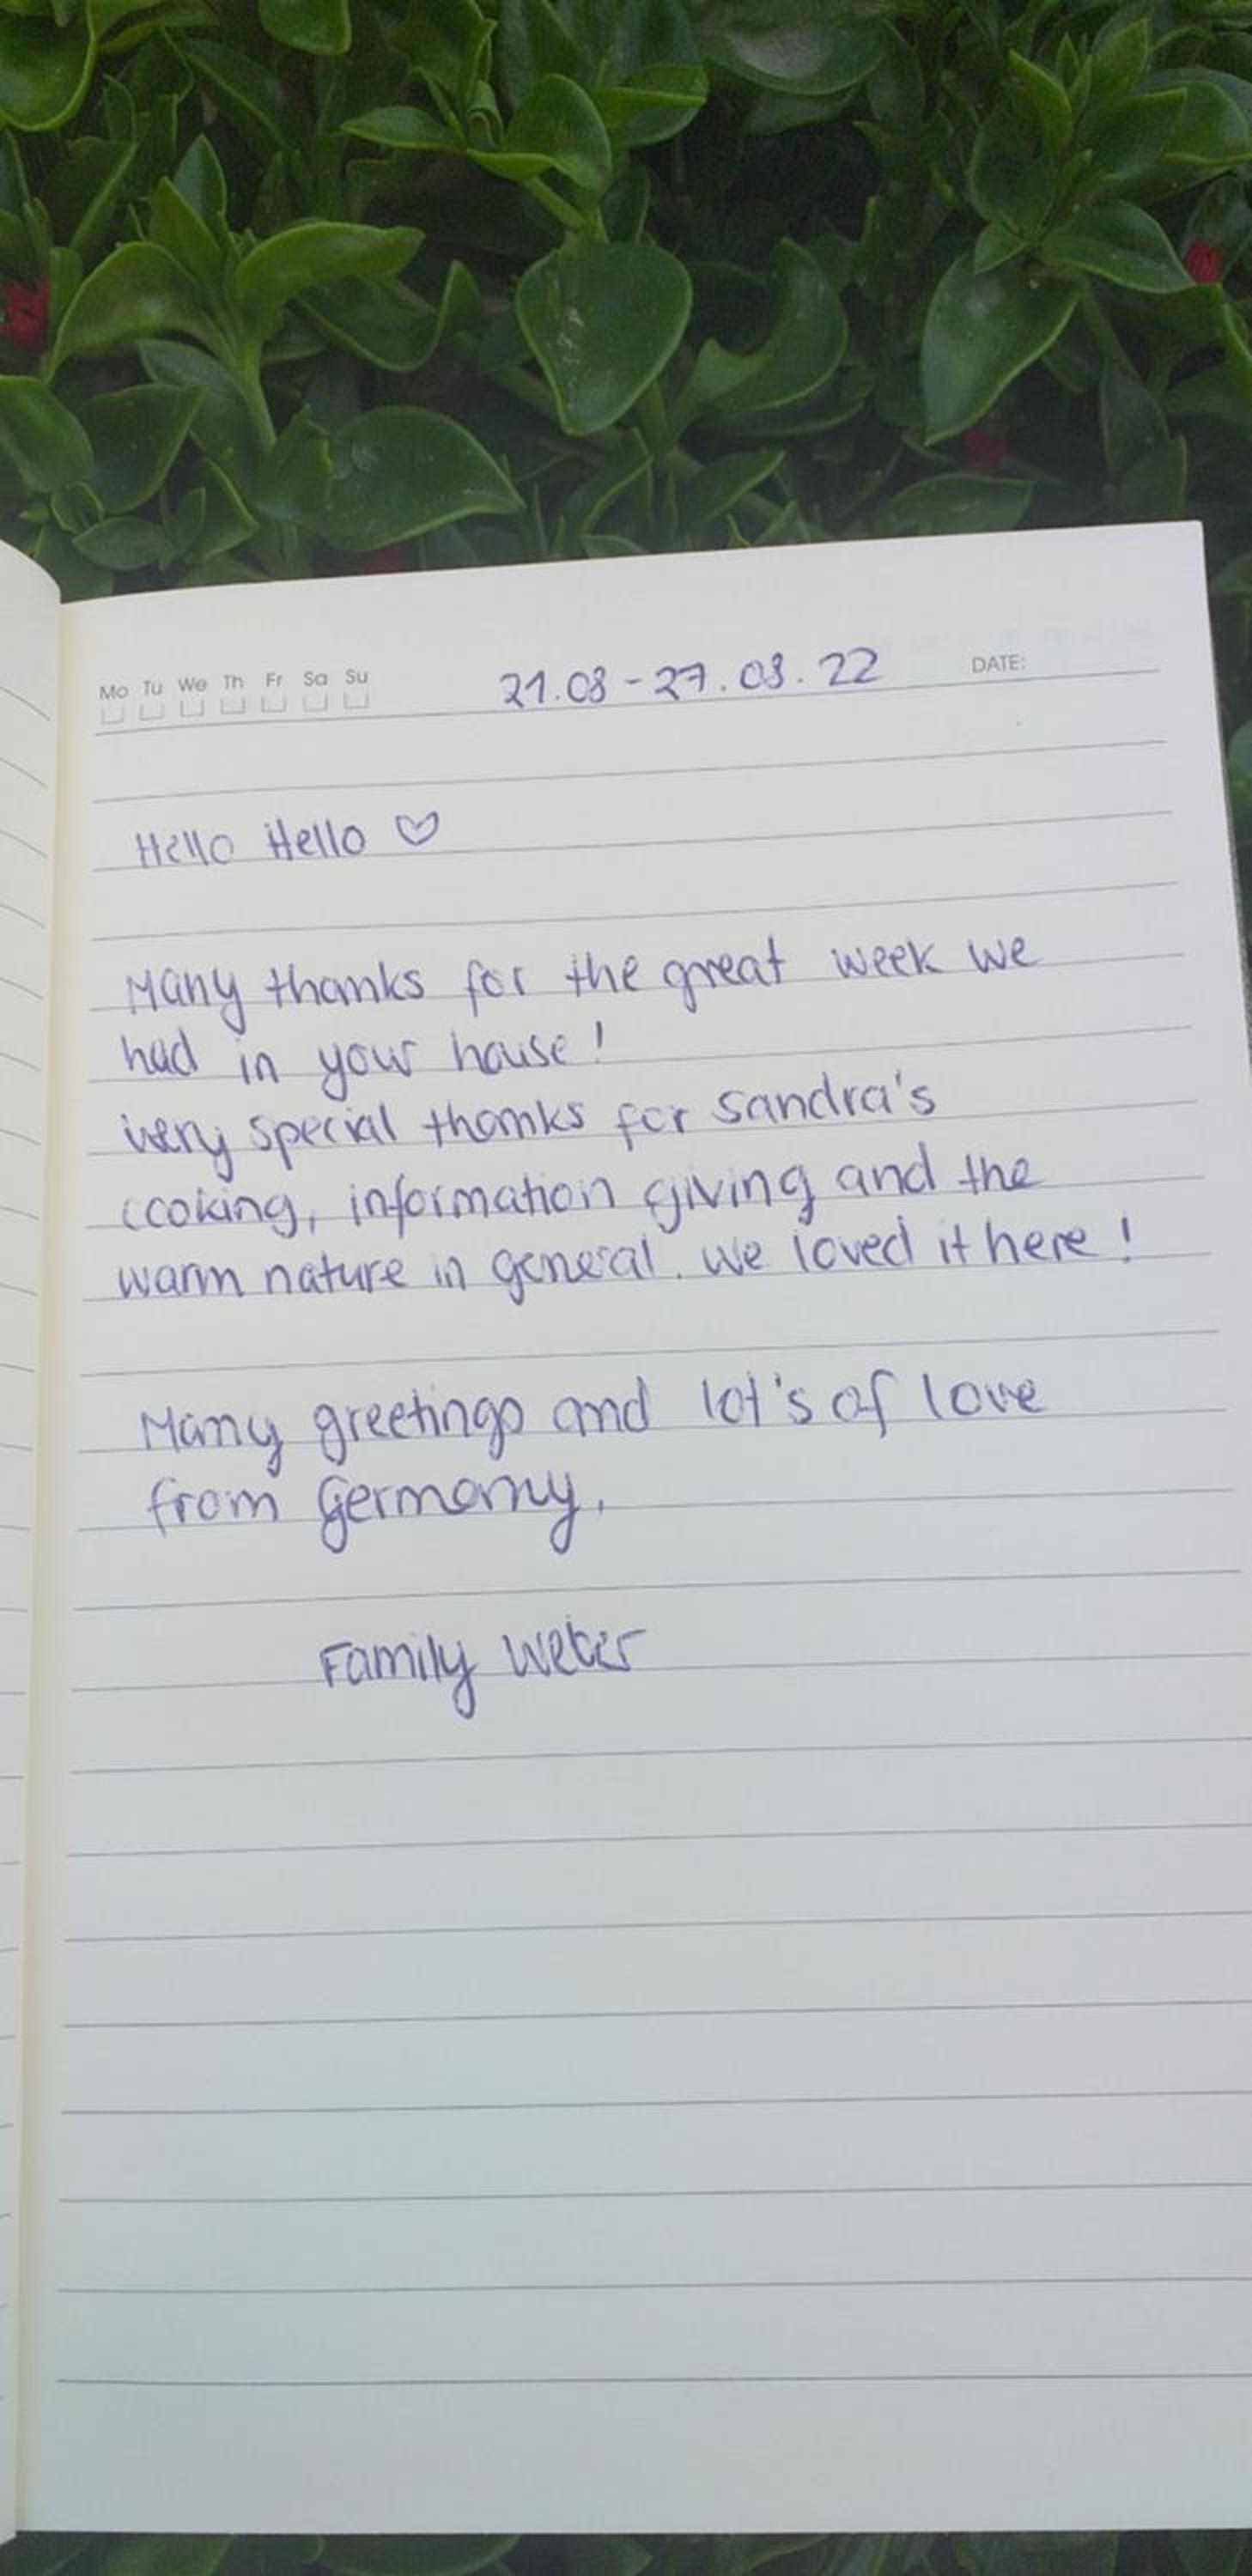 Mo Tu We Th Fr Sa Su 21.08 - 27.08.22 DATE:
Hello Hello ♡
Many thanks for the great week we
had in your house!
very special thanks for Sandra's
cooking, information giving and the
warm nature in general. we loved it here!
Many greetings and lot's of love
from Germany,
Family Weber